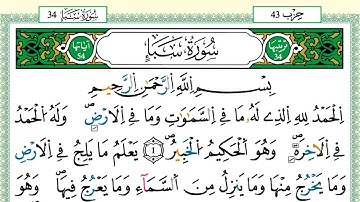 سُورَةُ سَبَإٍ 34
حِزْب 43
تَرْتِيبُهَا 34
سُورَةُ سَبَإٍ
آيَاتُهَا 54
بِسْمِ اللَّهِ الرَّحْمَٰنِ الرَّحِيمِ
الْحَمْدُ لِلَّهِ الَّذِي لَهُ مَا فِي السَّمَٰوَٰتِ وَمَا فِي الْأَرْضِ وَلَهُ الْحَمْدُ
فِي الْآخِرَةِ وَهُوَ الْحَكِيمُ الْخَبِيرُ 1 يَعْلَمُ مَا يَلِجُ فِي الْأَرْضِ
وَمَا يَخْرُجُ مِنْهَا وَمَا يَنزِلُ مِنَ السَّمَاءِ وَمَا يَعْرُجُ فِيهَا وَهُوَ